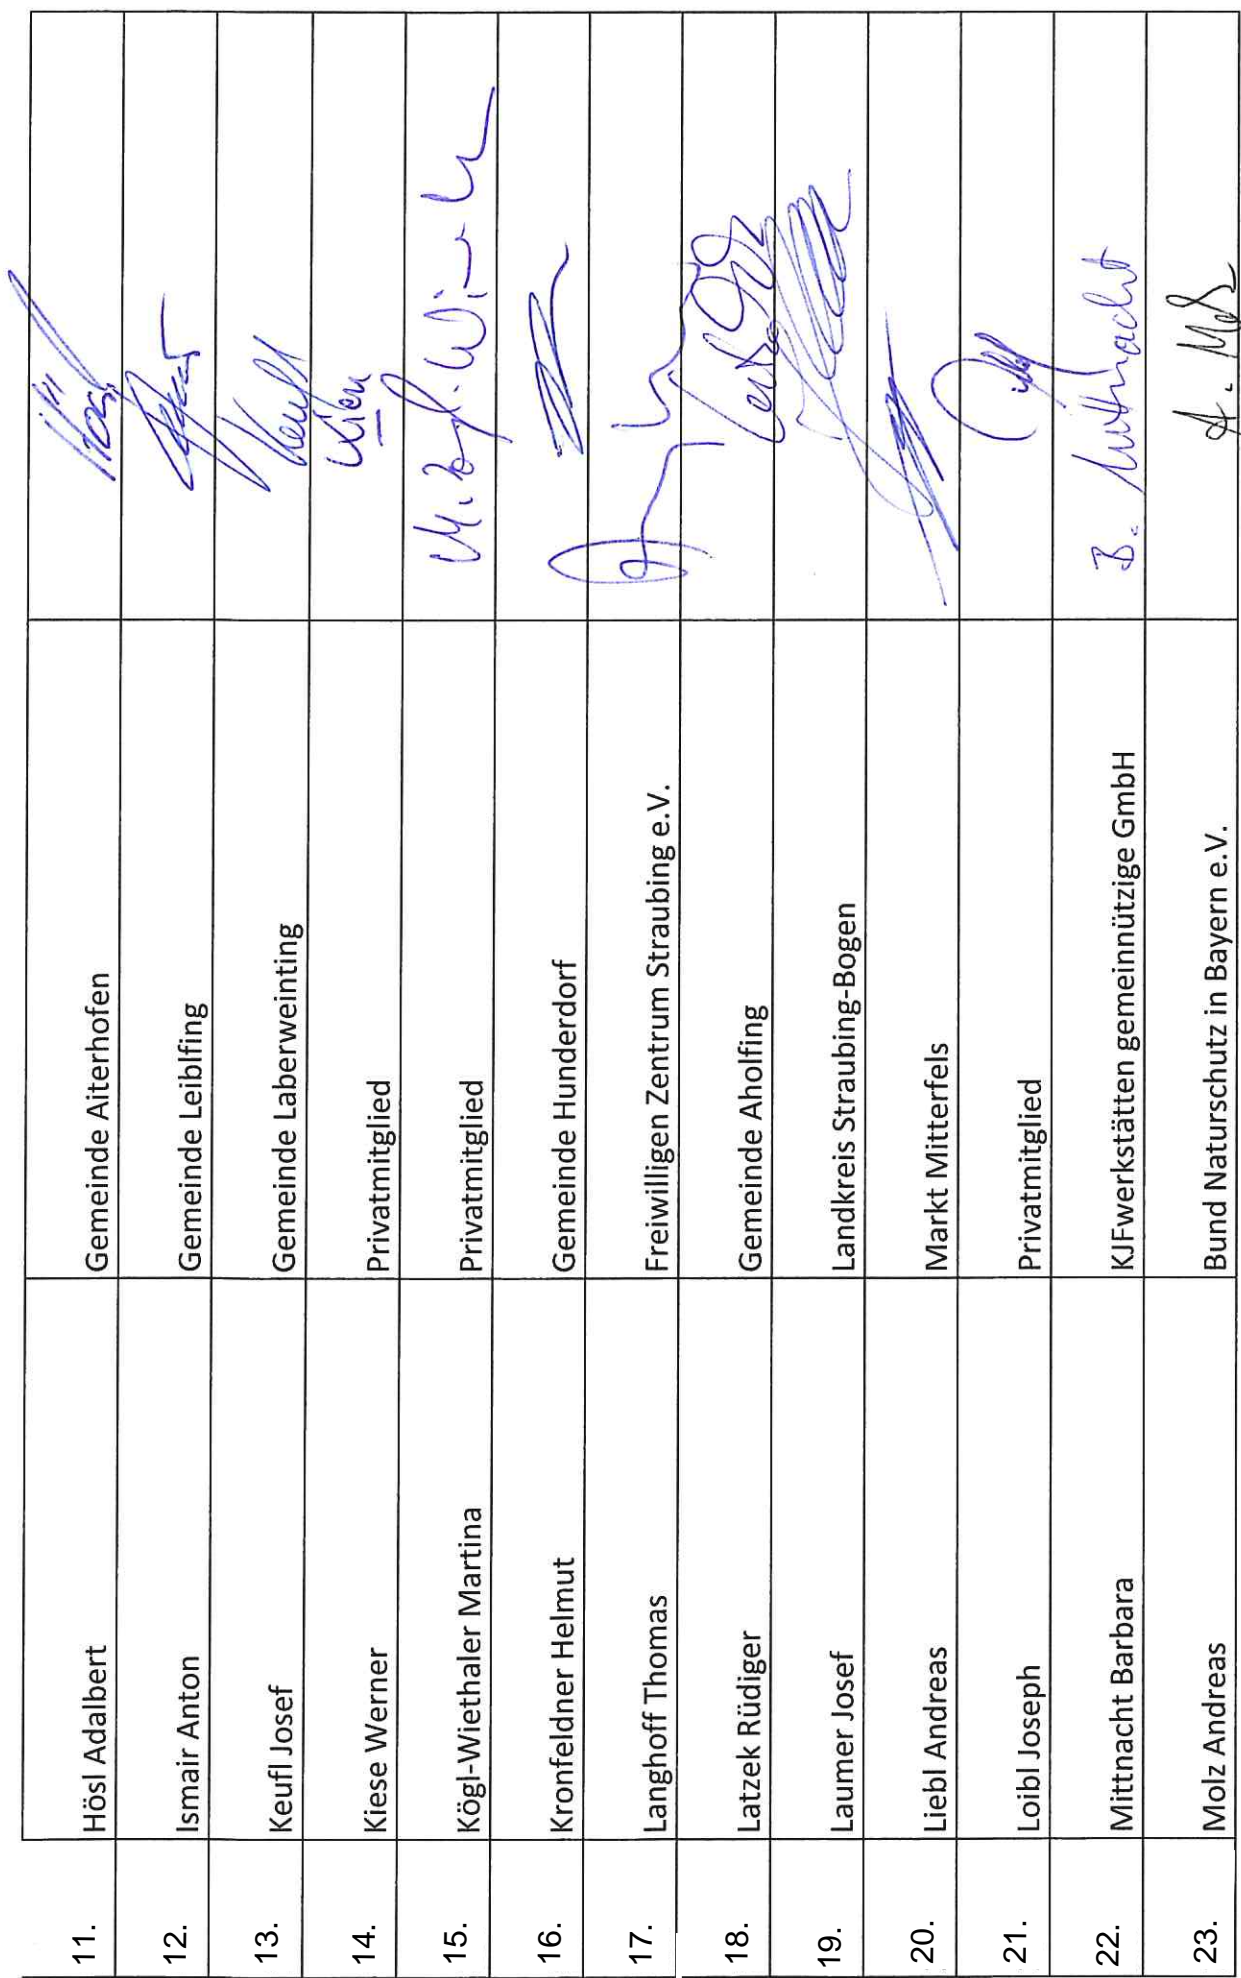 11. Hösl Adalbert Gemeinde Aiterhofen Hösl
12. Ismair Anton Gemeinde Leiblfing
13. Keufl Josef Gemeinde Laberweinting Keufl
14. Kiese Werner Privatmitglied
15. Kögl-Wiethaler Martina Privatmitglied
16. Kronfeldner Helmut Gemeinde Hunderdorf
17. Langhoff Thomas Freiwilligen Zentrum Straubing e.V.
18. Latzek Rüdiger Gemeinde Aholfing
19. Laumer Josef Landkreis Straubing-Bogen
20. Liebl Andreas Markt Mitterfels
21. Loibl Joseph Privatmitglied
22. Mittnacht Barbara KJFwerkstätten gemeinnützige GmbH B. Mittnacht
23. Molz Andreas Bund Naturschutz in Bayern e.V. A. Molz